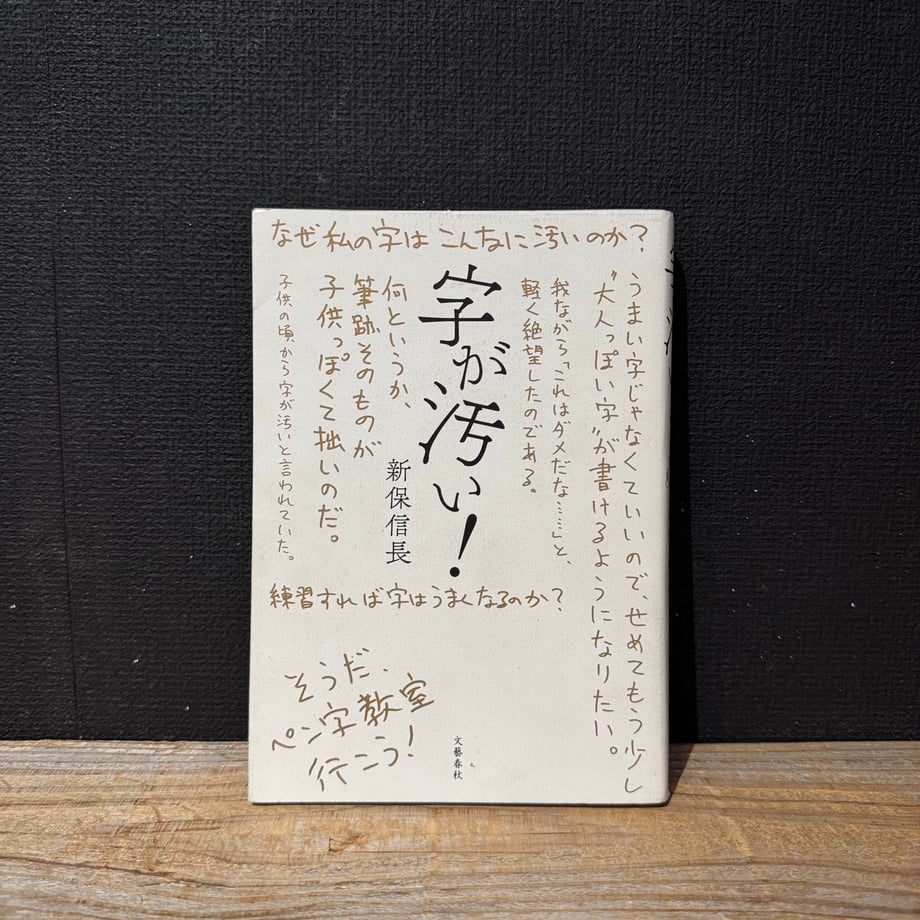 なぜ私の字はこんなに汚いのか?
うまい字じゃなくていいので、せめてもう少し
“大人っぽい字”が書けるようになりたい。
我ながら「これはダメだな……」と、
軽く絶望したのである。
字が汚い!
新保信長
何というか、
筆跡そのものが
子供っぽくて拙いのだ。
子供の頃から字が汚いと言われていた。
練習すれば字はうまくなるのか?
そうだ、
ペン字教室
行こう!
文藝春秋